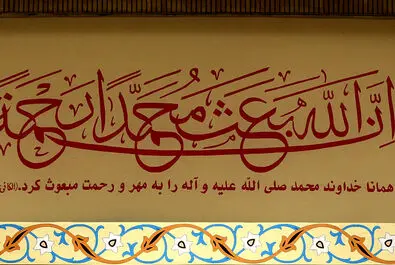 انّ الله بعث محمّداً رحمة
همانا خداوند محمد صلی الله علیه و آله را به مهر و رحمت مبعوث کرد. (الکافی